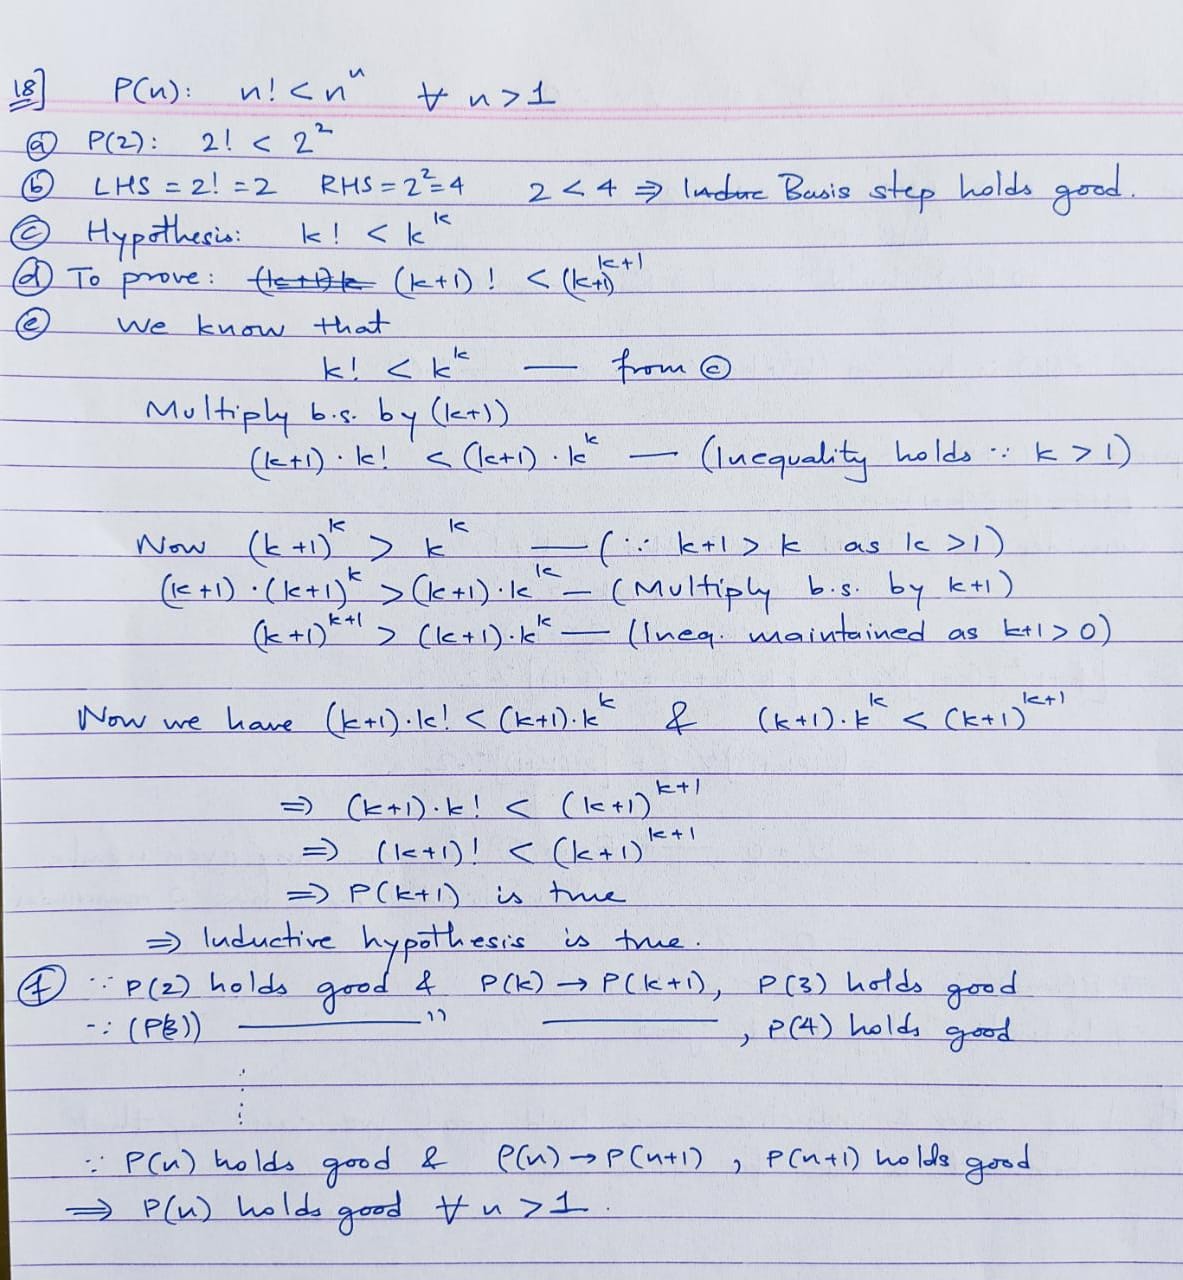 18] P(n): n! < nⁿ ∀ n > 1
ⓐ P(2): 2! < 2²
ⓑ LHS = 2! = 2 RHS = 2² = 4 2 < 4 ⇒ Basis step holds good.
ⓒ Hypothesis: k! < k^k
ⓓ To prove: (k+1)! < (k+1)^{k+1}
ⓔ We know that
k! < k^k — from ⓒ
Multiply b.s. by (k+1)
(k+1)·k! < (k+1)·k^k — (Inequality holds ∵ k > 1)
Now (k+1)^k > k^k — (∵ k+1 > k as k > 1)
(k+1)·(k+1)^k > (k+1)·k^k — (Multiply b.s. by k+1)
(k+1)^{k+1} > (k+1)·k^k — (Ineq. maintained as k+1 > 0)
Now we have (k+1)·k! < (k+1)·k^k & (k+1)·k^k < (k+1)^{k+1}
⇒ (k+1)·k! < (k+1)^{k+1}
⇒ (k+1)! < (k+1)^{k+1}
⇒ P(k+1) is true
⇒ Inductive hypothesis is true.
ⓕ ∵ P(2) holds good & P(k) → P(k+1), P(3) holds good
∵ (P(3)) —— " ——, P(4) holds good
⋮
∵ P(n) holds good & P(n) → P(n+1), P(n+1) holds good
⇒ P(n) holds good ∀ n > 1.